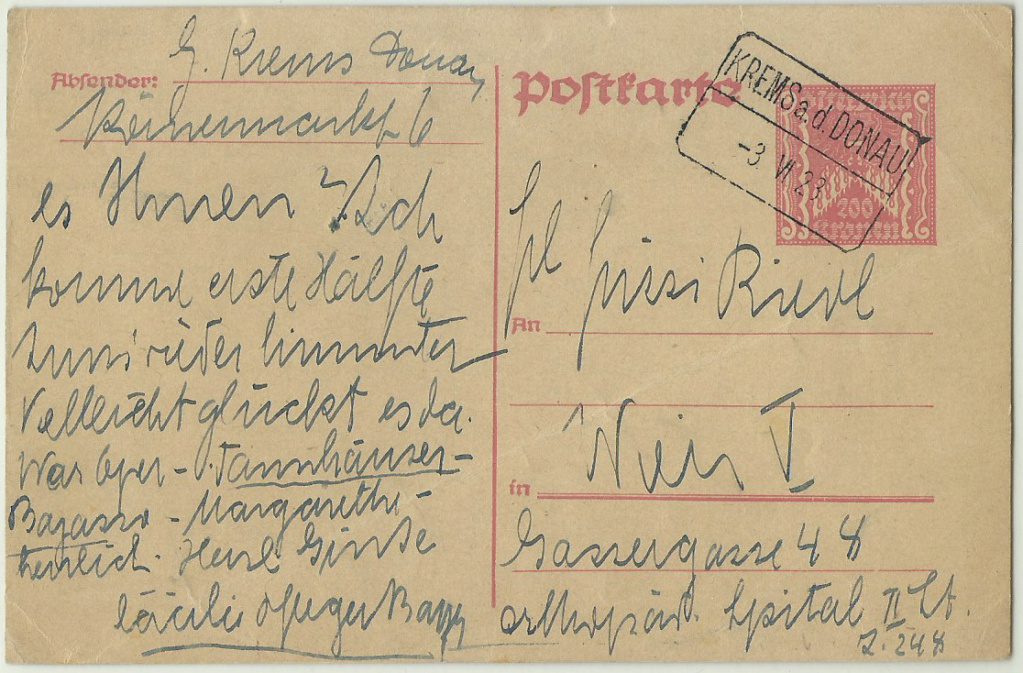 Absender: G. Krems Donau
Körnermarkt 6
es Ihnen? Ich
komme erste Hälfte
Juni wieder hinunter
Vielleicht glückt es da.
War Oper - Tannhäuser -
Bajazzo - Margarethe -
herrlich. Herzl Grüße
Cäcilie
Postkarte
KREMS a. d. DONAU
-3. VI 23
200
Kronen
An Frl Riedl
in Wien V
Gassergasse 44 - 48
orthopäd. Spital II St.
Z. 248